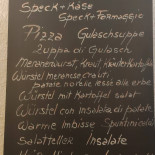 Speck + Käse
Speck + Formaggio
Pizza Gulaschsuppe
Zuppa di Gulasch
Meranerwurst, Kraut
Würstel Meranese, crauti
patate
Würstel mit Kartoffelsalat
Würstel con Insalata di patate
Warme Imbisse Spuntini caldi
Salatteller Insalate